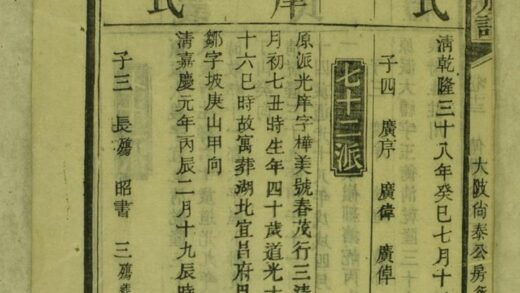 尚泰公房
氏
淸乾隆三十八年癸巳七月十
子四 廣序 廣偉 廣倬
七十二派
原派光庠字樺美號春茂行三淸
月初七丑時生年四十歲道光十
十六巳時故寓葬湖北宜昌府
鄒字坡庚山甲向
氏
淸嘉慶元年丙辰二月十九辰時
子三 長殤 昭書 三殤